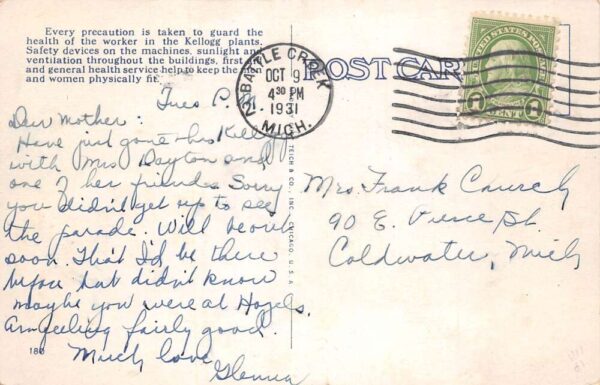 Every precaution is taken to guard the
health of the worker in the Kellogg plants.
Safety devices on the machines, sunlight and
ventilation throughout the buildings, first
and general health service help to keep the men
and women physically fit.
BATTLE CREEK
OCT 9
4 30 PM
1931
MICH.
2
POST CARD
UNITED STATES POSTAGE
1 CENT 1
Tues P.M.
Dear Mother:
Have just gone thro Kellogg
with Mrs Dayton and
one of her friends. Sorry
you didn't get up to see
the parade. Will be over
soon. Tho't I'd be there
before but didn't know
maybe you were at Hazels.
Am feeling fairly good.
Much love
Glenna
180
TEICH & CO., INC., CHICAGO, U.S.A.
Mrs. Frank
90 E. Pierce St.
Coldwater, Mich